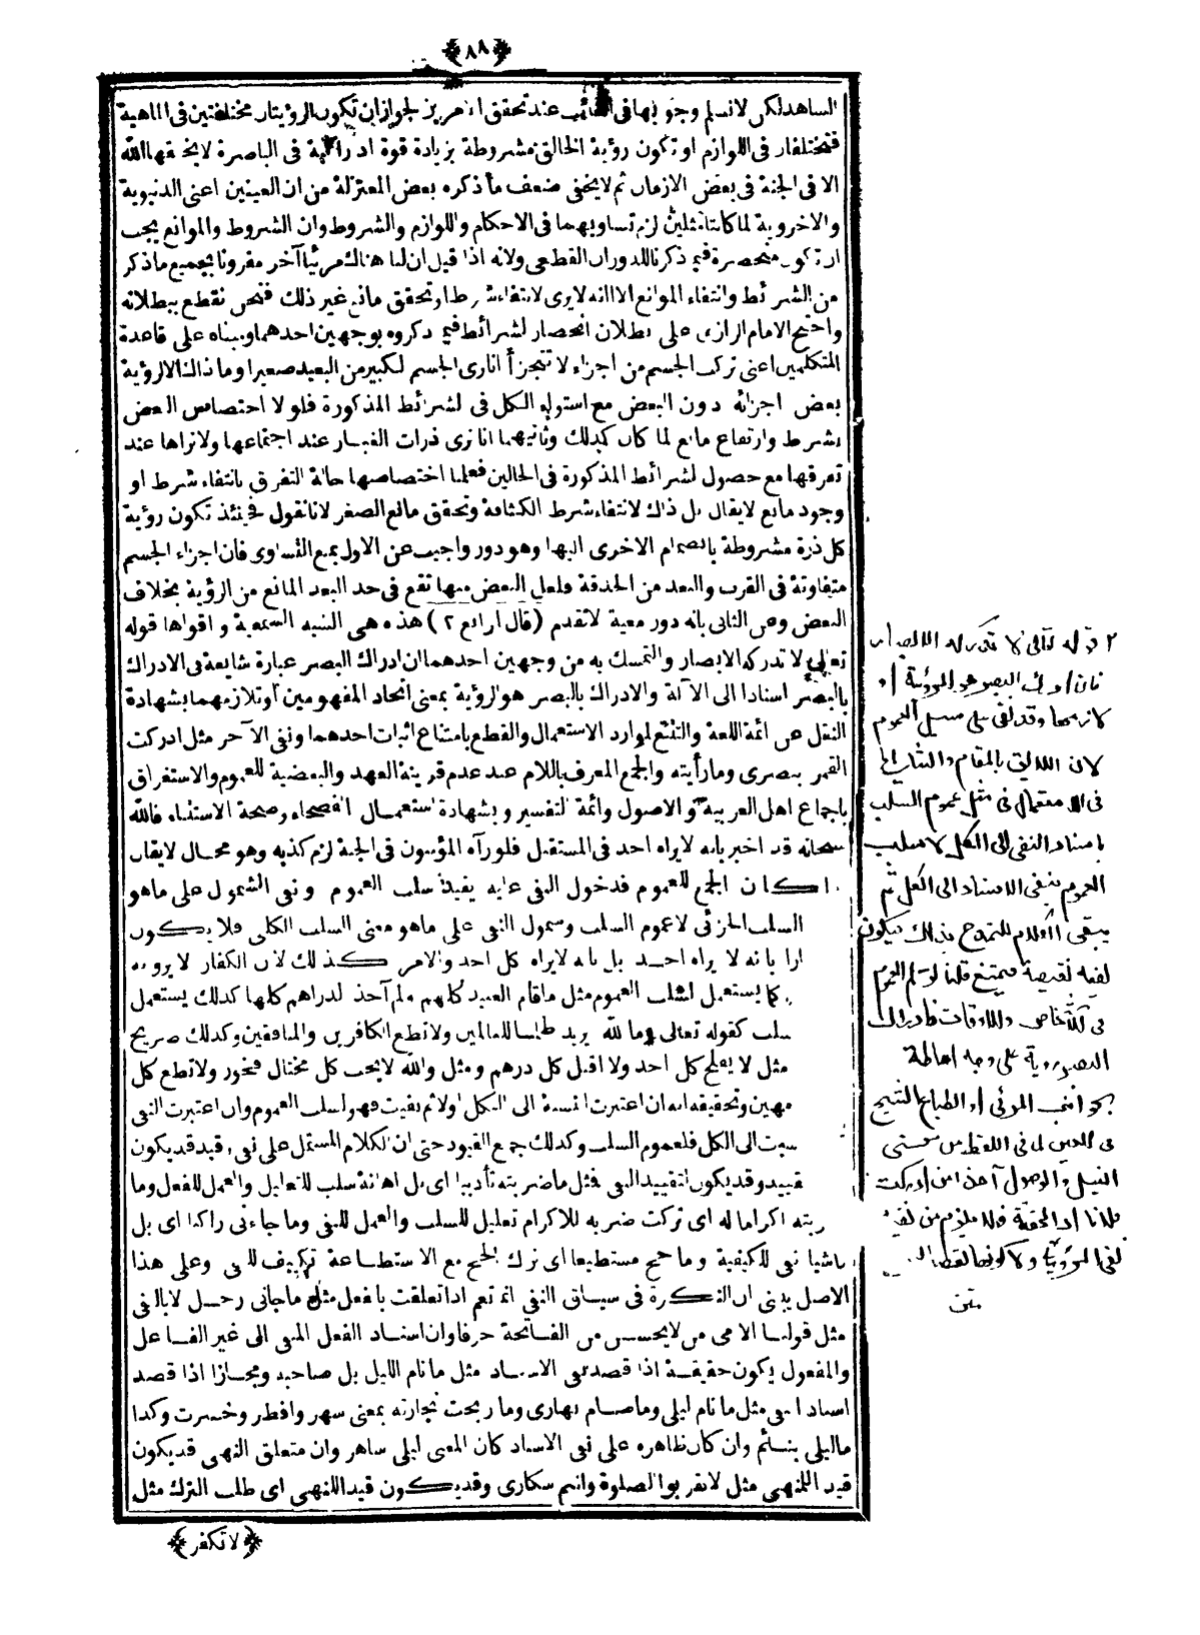 ﴿٨٨﴾
الشاهد لكن لا نسلم وجوبها فى الغائب عند تحقق الامرين لجواز ان تكون الرؤيتان مختلفتين فى الماهية
فتختلفان فى اللوازم او تكون رؤية الخالق مشروطة بزيادة قوة ادراكية فى الباصرة لا يخلقها الله
الا فى الجنة فى بعض الازمان ثم لا يخفى ضعف ما ذكره بعض المعتزلة من ان العينين اعنى الدنيوية
والاخروية لما كانتا مثلين لزم تساويهما فى الاحكام واللوازم والشروط وان الشروط والموانع يجب
ان تكون منحصرة فيما ذكرنا للدوران القطعى ولانه اذا قيل ان لنا هناك مرئيا آخر مقرونا بجميع ما ذكر
من الشرائط وانتفاء الموانع الا انه لا يرى لانتفاء شرط او تحقق مانع غير ذلك فنحن نقطع ببطلانه
واحتج الامام الرازى على بطلان انحصار الشرائط فيما ذكروه بوجهين احدهما ومبناه على قاعدة
المتكلمين اعنى تركب الجسم من اجزاء لا تتجزأ انا نرى الجسم الكبير من البعيد صغيرا وما ذاك الا لرؤية
بعض اجزائه دون البعض مع استواء الكل فى الشرائط المذكورة فلو لا اختصاص البعض
بشرط وارتفاع مانع لما كان كذلك وثانيهما انا نرى ذرات الغبار عند اجتماعها ولا نراها عند
تفرقها مع حصول الشرائط المذكورة فى الحالين فعلمنا اختصاصها حالة التفرق بانتفاء شرط او
وجود مانع لا يقال بل ذلك لانتفاء شرط الكثافة وتحقق مانع الصغر لانا نقول فحينئذ تكون رؤية
كل ذرة مشروطة بانضمام الاخرى اليها وهو دور واجيب عن الاول بمنع التساوى فان اجزاء الجسم
متفاوتة فى القرب والبعد من الحدقة فلعل البعض منها تقع فى حد البعد المانع من الرؤية بخلاف
البعض وعن الثانى بانه دور معية لا تقدم (قال الرابع ٢) هذه هى الشبه السمعية واقواها قوله
تعالى لا تدركه الابصار والتمسك به من وجهين احدهما ان ادراك البصر عبارة شايعة فى الادراك
بالبصر اسنادا الى الآلة والادراك بالبصر هو الرؤية بمعنى اتحاد المفهومين او تلازمهما بشهادة
النقل عن ائمة اللغة والتتبع لموارد الاستعمال والقطع بامتناع اثبات احدهما ونفى الآخر مثل ادركت
القمر ببصرى وما رأيته والجمع المعرف باللام عند عدم قرينة العهد والبعضية للعموم والاستغراق
باجماع اهل العربية والاصول وائمة التفسير وبشهادة استعمال الفصحاء وصحة الاستثناء فالله
سبحانه قد اخبر بانه لا يراه احد فى المستقبل فلو رآه المؤمنون فى الجنة لزم كذبه وهو محال لا يقال
اذا كان الجمع للعموم فدخول النفى عليه يفيد سلب العموم ونفى الشمول على ما هو
السلب الجزئى لا عموم السلب وشمول النفى على ما هو معنى السلب الكلى فلا يكون
بانه لا يراه احد بل بانه لا يراه كل احد والامر كذلك لان الكفار لا يرونه
كما يستعمل لسلب العموم مثل ما قام العبيد كلهم ولم آخذ الدراهم كلها كذلك يستعمل
السلب كقوله تعالى وما الله يريد ظلما للعالمين ولا تطع الكافرين والمنافقين وكذلك صريح
مثل لا يفلح كل احد ولا اقبل كل درهم ومثل والله لا يحب كل مختال فخور ولا تطع كل
مهين وتحقيقه انه ان اعتبرت النسبة الى الكل اولا ثم نفيت فهو لسلب العموم وان اعتبرت النفى
الى الكل فلعموم السلب وكذلك جميع القيود حتى ان الكلام المشتمل على نفى وقيد قد يكون
وقد يكون لتقييد النفى فمثل ما ضربته تأديبا اى بل اهانة سلب للتعليل والعمل للفعل وما
اكراما له اى تركت ضربه للاكرام تعليل للسلب والعمل للنفى وما جاءنى راكبا اى بل
ماشيا نفى للكيفية وما حج مستطيعا اى ترك الحج مع الاستطاعة تكييف للنفى وعلى هذا
الاصل يبنى ان النكرة فى سياق النفى انما تعم اذا تعلقت بالفعل مثل ما جاءنى رجل لا بالنفى
مثل قولنا الامى من لا يحسن من الفاتحة حرفا وان اسناد الفعل المنفى الى غير الفاعل
والمفعول يكون حقيقة اذا قصد نفى الاسناد مثل ما نام الليل بل صاحبه ومجازا اذا قصد
اسناد النفى مثل ما نام ليلى وما صام نهارى وما ربحت تجارته بمعنى سهر وافطر وخسرت وكذا
ما ليلى بنائم وان كان ظاهره على نفى الاسناد كان المعنى ليلى ساهر وان متعلق النهى قد يكون
قيدا للمنهى مثل لا تقربوا الصلوة وانتم سكارى وقد يكون قيدا للنهى اى طلب الترك مثل
﴿لا تكفر﴾
٢ قوله تعالى لا تدركه الابصار
فان ادراك البصر هو الرؤية او
لازمها وقد نفى على سبيل العموم
لان اللائق بالمقام والشايع
فى الاستعمال فى مثله عموم السلب
باسناد النفى الى الكل لا سلب
العموم بنفى الاسناد الى الكل ثم
يبقى الكلام للتمدح بذلك فيكون
نقيضه نقيصة فيمتنع قلنا لو سلم العموم
فى الاشخاص والاوقات فادراك
البصر رؤية على وجه احاطة
بجوانب المرئى او انطباع الشبح
فى العين لما فى اللفظ من معنى
النيل والوصول آخذا من ادركت
فلانا اذا لحقته فلا يلزم من نفيه
نفى الرؤية ولا كونها نقصا
متن